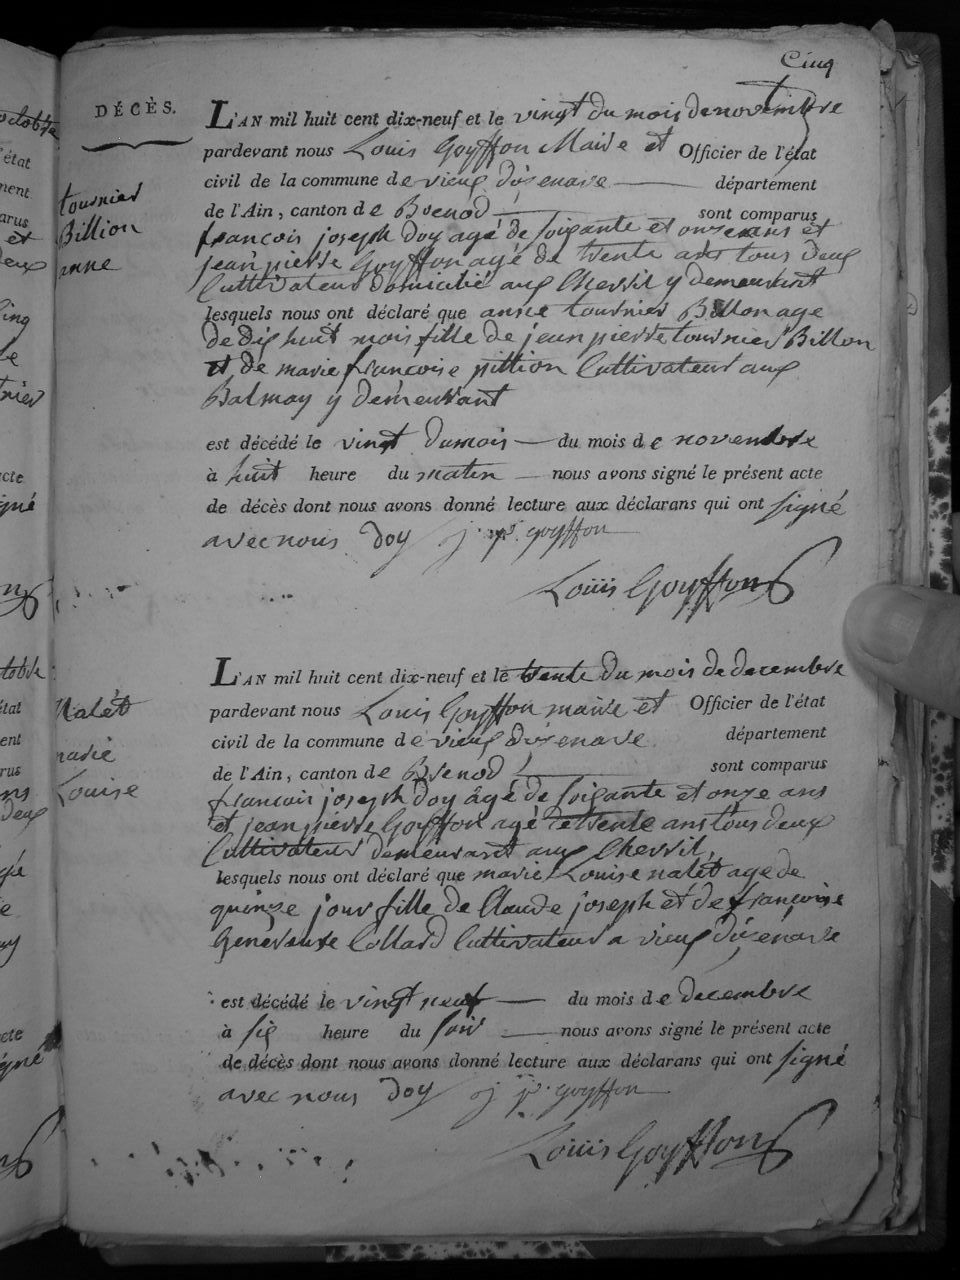 Cinq
DÉCÈS.
L'AN mil huit cent dix-neuf et le vingt du mois de novembre
pardevant nous Louis Goyffon Maire et Officier de l'état
civil de la commune de vieux dizenave département
de l'Ain, canton de Brenod sont comparus
tournier
Billion
anne
francois joseph Doy agé de soixante et onze ans et
jean pierre Goyffon agé de trente ans tous deux
Cultivateur domicilié aux Chevril y demeurant
lesquels nous ont déclaré que anne tournier Billon age
de dix huit mois fille de jean pierre tournier Billon
et de marie francoise pittion Cultivateur aux
Balmay y demeurant
est décédé le vingt du mois du mois de novembre
à huit heure du matin nous avons signé le présent acte
de décès dont nous avons donné lecture aux déclarans qui ont signé
avec nous Doy j. pr. goyffon
Louis Goyffon
L'AN mil huit cent dix-neuf et le trente du mois de decembre
pardevant nous Louis Goyffon maire et Officier de l'état
civil de la commune de vieux dizenave département
de l'Ain, canton de Brenod sont comparus
Nalét
marie
Louise
francois joseph Doy âgé de soixante et onze ans
et jean pierre Goyffon agé de trente ans tous deux
Cultivateur demeurant aux Chevril
lesquels nous ont déclaré que marie Louise nalét age de
quinze jour fille de Claude joseph et de françoise
Genevieve Collard Cultivateur a vieux dizenave
est décédé le vingt neuf du mois de decembre
à six heure du soir nous avons signé le présent acte
de décès dont nous avons donné lecture aux déclarans qui ont signé
avec nous Doy j. pr. goyffon
Louis Goyffon